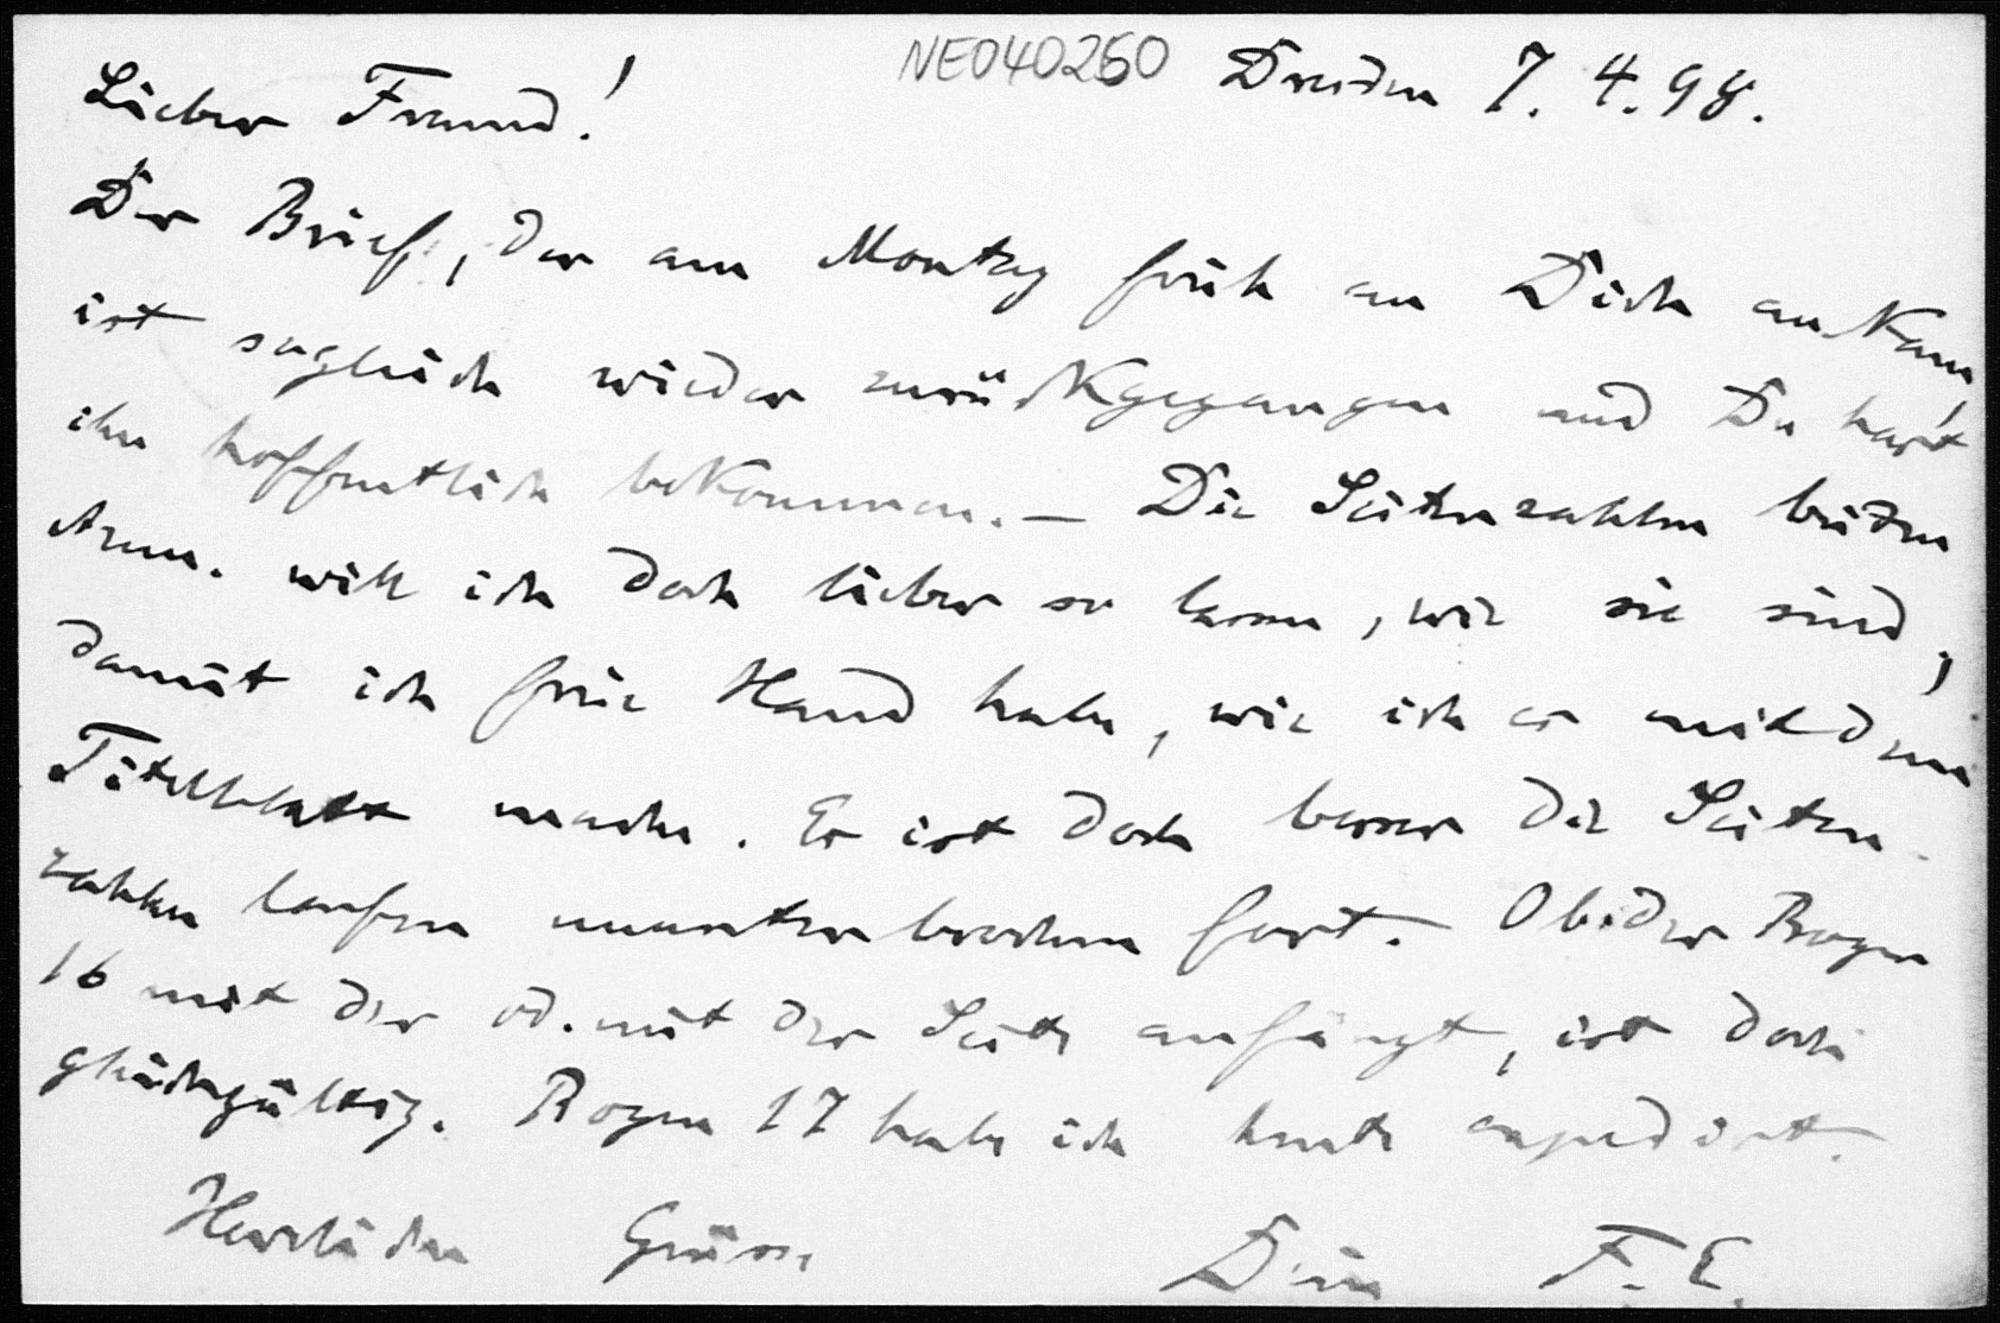 NE040260
Dresden 7. 4. 98.
Lieber Freund!
Der Brief, der am Montag früh an Dich ankam,
ist sogleich wieder zurückgegangen und Du hast
ihn hoffentlich bekommen. — Die Seitenzahlen beiden
Anm. will ich doch lieber so lassen, wie sie sind,
damit ich freie Hand habe, wie ich es mit dem
Titelblatt mache. Es ist doch besser die Seiten-
zahlen laufen ununterbrochen fort. Ob der Bogen
16 mit der od. mit der Seite anfängt, ist doch
gleichgültig. Bogen 17 habe ich heute expedirt.
Herzlichen Grüsse
Dein F. E.